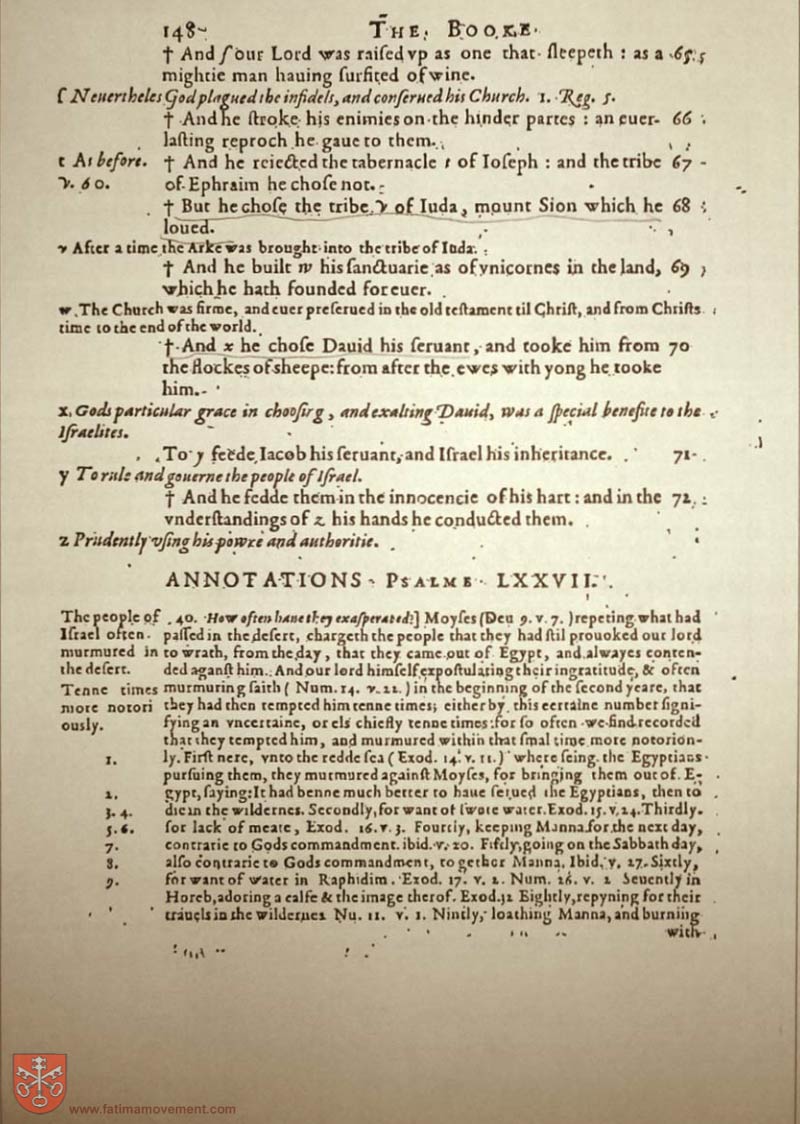 148 THE BOOKE
† And ſ our Lord was raiſed vp as one that ſleepeth : as a 65
mightie man hauing ſurfited of wine.
ſ Neuertheles God plagued the infidels, and conſerued his Church. 1. Reg. 5.
† And he ſtroke his enimies on the hinder partes : an euer- 66
laſting reproch he gaue to them.
t As before. † And he reiected the tabernacle t of Ioſeph : and the tribe 67
v. 60. of Ephraim he choſe not.
† But he choſe the tribe v of Iuda, mount Sion which he 68
loued.
v After a time the Arke was brought into the tribe of Iuda.
† And he built w his ſanctuarie as of vnicornes in the land, 69
which he hath founded for euer.
w The Church was firme, and euer preſerued in the old teſtament til Chriſt, and from Chriſts
time to the end of the world.
† And x he choſe Dauid his ſeruant, and tooke him from 70
the flockes of ſheepe: from after the ewes with yong he tooke
him.
x. Gods particular grace in chooſirg, and exalting Dauid, was a ſpecial benefite to the
Iſraelites.
To y feede Iacob his ſeruant, and Iſrael his inheritance. 71
y To rule and gouerne the people of Iſrael.
† And he fedde them in the innocencie of his hart : and in the 72
vnderſtandings of z his hands he conducted them.
z Prudently vſing his powre and authoritie.
ANNOTATIONS PSALME LXXVII.
The people of 40. How often haue they exaſperated?] Moyſes (Deu 9. v. 7.) repeting what had
Iſrael often paſſed in the deſert, chargeth the people that they had ſtil prouoked our lord
murmured in to wrath, from the day, that they came out of Egypt, and alwayes conten-
the deſert. ded aganſt him. And our lord himſelf expoſtulating their ingratitude, & often
Tenne times murmuring ſaith ( Num. 14. v. 22.) in the beginning of the ſecond yeare, that
more notori they had then tempted him tenne times; either by this certaine number ſigni-
ously. fying an vncertaine, or els chiefly tenne times: for ſo often we find recorded
that they tempted him, and murmured within that ſmal time more notorion-
1. ly. Firſt nere, vnto the redde ſea ( Exod. 14. v. 11.) where ſeing the Egyptians
purſuing them, they murmured againſt Moyſes, for bringing them out of E-
2. gypt, ſaying: It had benne much better to haue ſerued the Egyptians, then to
3. 4. die in the wildernes. Secondly, for want of ſwote water. Exod. 15. v. 24. Thirdly.
5. 6. for lack of meate, Exod. 16. v. 3. Fourtly, keeping Manna for the next day,
7. contrarie to Gods commandment. ibid. v. 20. Fiftly, going on the Sabbath day,
8. alſo contrarie to Gods commandment, to gether Manna. Ibid. v. 27. Sixtly,
9. for want of water in Raphidim. Exod. 17. v. 2. Num. 26. v. 2 Seuently in
Horeb, adoring a calfe & the image therof. Exod. 32 Eightly, repyning for their
trauels in the wildernes Nu. 11. v. 1. Nintly, loathing Manna, and burning
with
www.fatimamovement.com